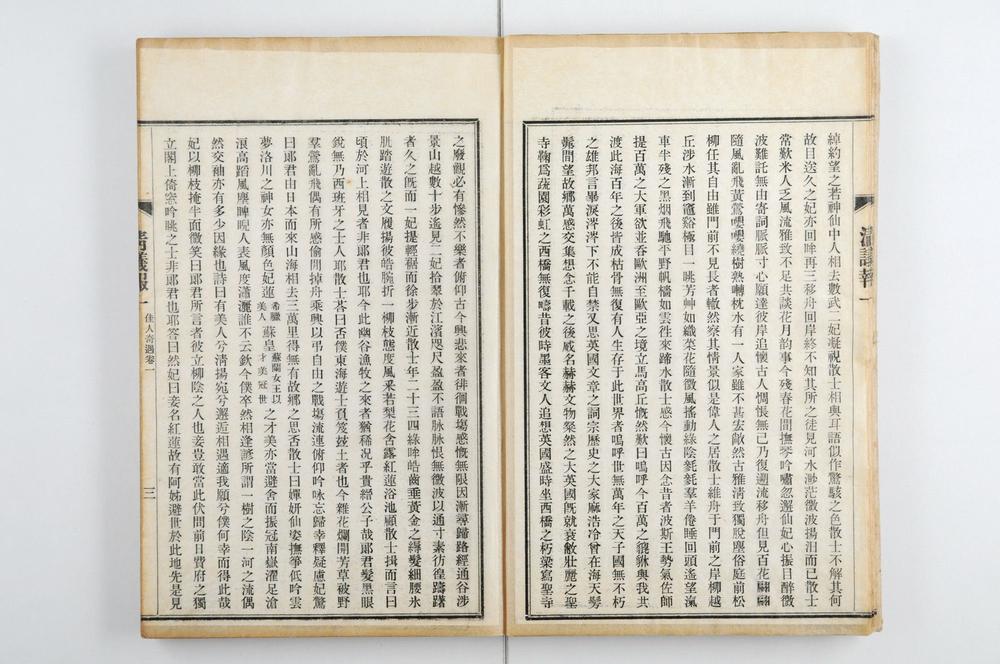 綽約望之若神仙中人相去數武二妃凝視散士相與耳語似作驚駭之色散士不解其何
故目送久之妃亦回眸再三移舟回岸終不知其所之徒見河水渺茫微波揚汨而已散士
常歎米人乏風流雅致不足共談花月韵事今殘春花間撫琴吟嘯忽邂仙妃心振目醉微
波難託無由寄詞脈脈寸心願達彼岸追懷古人惆悵無已乃復遡流移舟但見百花翩翩
隨風亂飛黃鶯嚶嚶繞樹熟囀枕水有一人家雖不甚宏敞然古雅清致獨脫塵俗庭前松
柳任其自由雖門前不見長者轍然察其情景似是偉人之居散士維舟于門前之岸柳越
丘涉水漸到竈谿極目一眺芳艸如織菜花隨微風搖動綠陰毿毿羣羊倦睡回頭遙望滊
車半殘之黑烟飛馳平野帆檣如雲徃來蹄水散士感今懷古因念昔者波斯王勢氣佐師
提百萬之大軍欲並吞歐洲至歐亞之境立馬高丘慨然歎曰嗚呼今百萬之貔貅與我共
渡此海百年之後皆成枯骨無復有人生存于此世界者嗚呼世無萬年之天子國無不朽
之雄邦言畢淚涔涔下不能自禁又思英國文章之詞宗歷史之大家麻浩冷曾在海天髣
髴間望故鄉萬感交集想念千載之後威名赫赫文物粲然之大英國旣就衰敝壯麗之聖
寺鞠爲蔬園彩虹之西橋無復疇昔彼時墨客文人追想英國盛時坐西橋之朽梁寫聖寺
清議報一
之廢觀必有慘然不樂者俯仰古今興悲來者徘徊戰塲感慨無限因漸尋歸路經通谷涉
景山越數十步遙見二妃拾翠於江濱咫尺盈盈不語脉脉恨無微波以通寸素彷徨躊躇
者久之旣而一妃提輕裾而徐步漸近散士年二十三四綠眸皓齒垂黃金之縟髮細腰氷
肌踏遊散之文履揚彼皓腕折一柳枝態度風釆若梨花含露紅蓮浴池顧散士揖而言曰
頃於河上相見者非郞君也耶今此幽谷漁牧之來者猶稀况乎貴縉公子哉郞君髮黑眼
銳無乃西班牙之士人耶散士荅曰否僕東海遊士負笈玆土者也今雜花爛開芳草被野
羣鶯亂飛偶有所感偷閒掉舟乘興以弔自由之戰塲流連俯仰吟咏忘歸幸釋疑慮妃驚
曰郞君由日本而來山海相去三萬里得無有故鄉之思否散士曰嬋姸仙姿撫箏低吟雲
夢洛川之神女亦無顏色妃蓮希臘美人蘇皇蘇蘭女王以才美冠世之才美亦當避舍而振冠南嶽濯足滄
浪高蹈風塵睥睨人表風度瀟灑誰不云欽今僕卒然相逢諺所謂一樹之陰一河之流偶
然交袖亦有多少因緣也詩曰有美人兮淸揚宛兮邂逅相遇適我願兮僕何幸而得此哉
妃以柳枝掩半面微笑曰郞君所言者彼立柳陰之人也妾豈敢當此伏問前日費府之獨
立閣上倚窓吟眺之士非郞君也耶答曰然妃曰妾名紅蓮故有阿姊避世於此地先是見
清議報一
佳人奇遇卷一
三